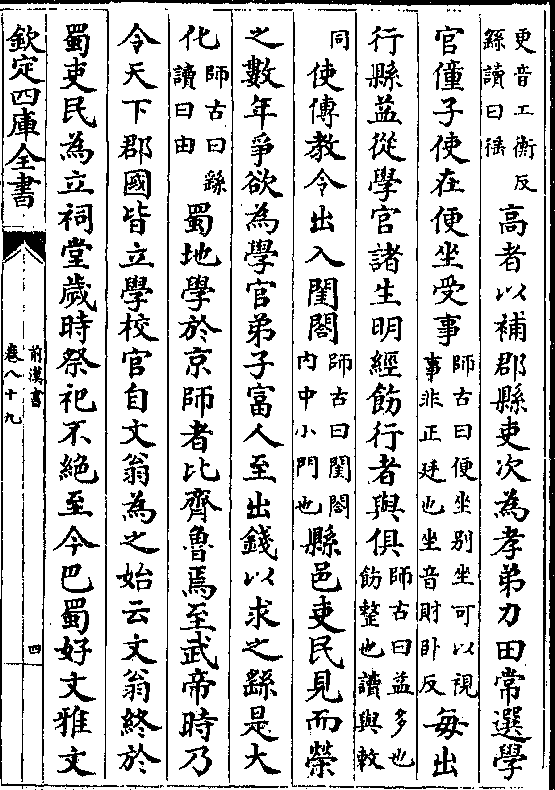 更音工衡反
繇讀曰徭
高者以補郡縣吏次為孝弟力田常選學
官僮子使在便坐受事
師古曰便坐別坐可以視
事非正廷也坐音財卧反
毎出
行縣益從學官諸生明經飭行者與俱
師古曰益多也
飭整也讀與敕
同
使傳教令出入閨閤
師古曰閨閤
内中小門也
縣邑吏民見而榮
之數年爭欲為學官弟子富人至出錢以求之繇是大
化
師古曰繇
讀曰由
蜀地學於京師者比齊魯焉至武帝時乃
令天下郡國皆立學校官自文翁為之始云文翁終於
蜀吏民為立祠堂歲時祭祀不絶至今巴蜀好文雅文
欽定四庫全書
前漢書
卷八十九
四